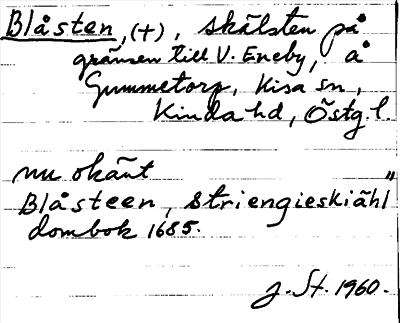 Blåsten, (+), skälsten på
gränsen till V. Eneby, å
Gummetorp, Kisa sn,
Kinda hd, Östg.l.
nu okänt "
Blåsteen, Striengieskiähl
dombok 1685.
J. St. 1960.